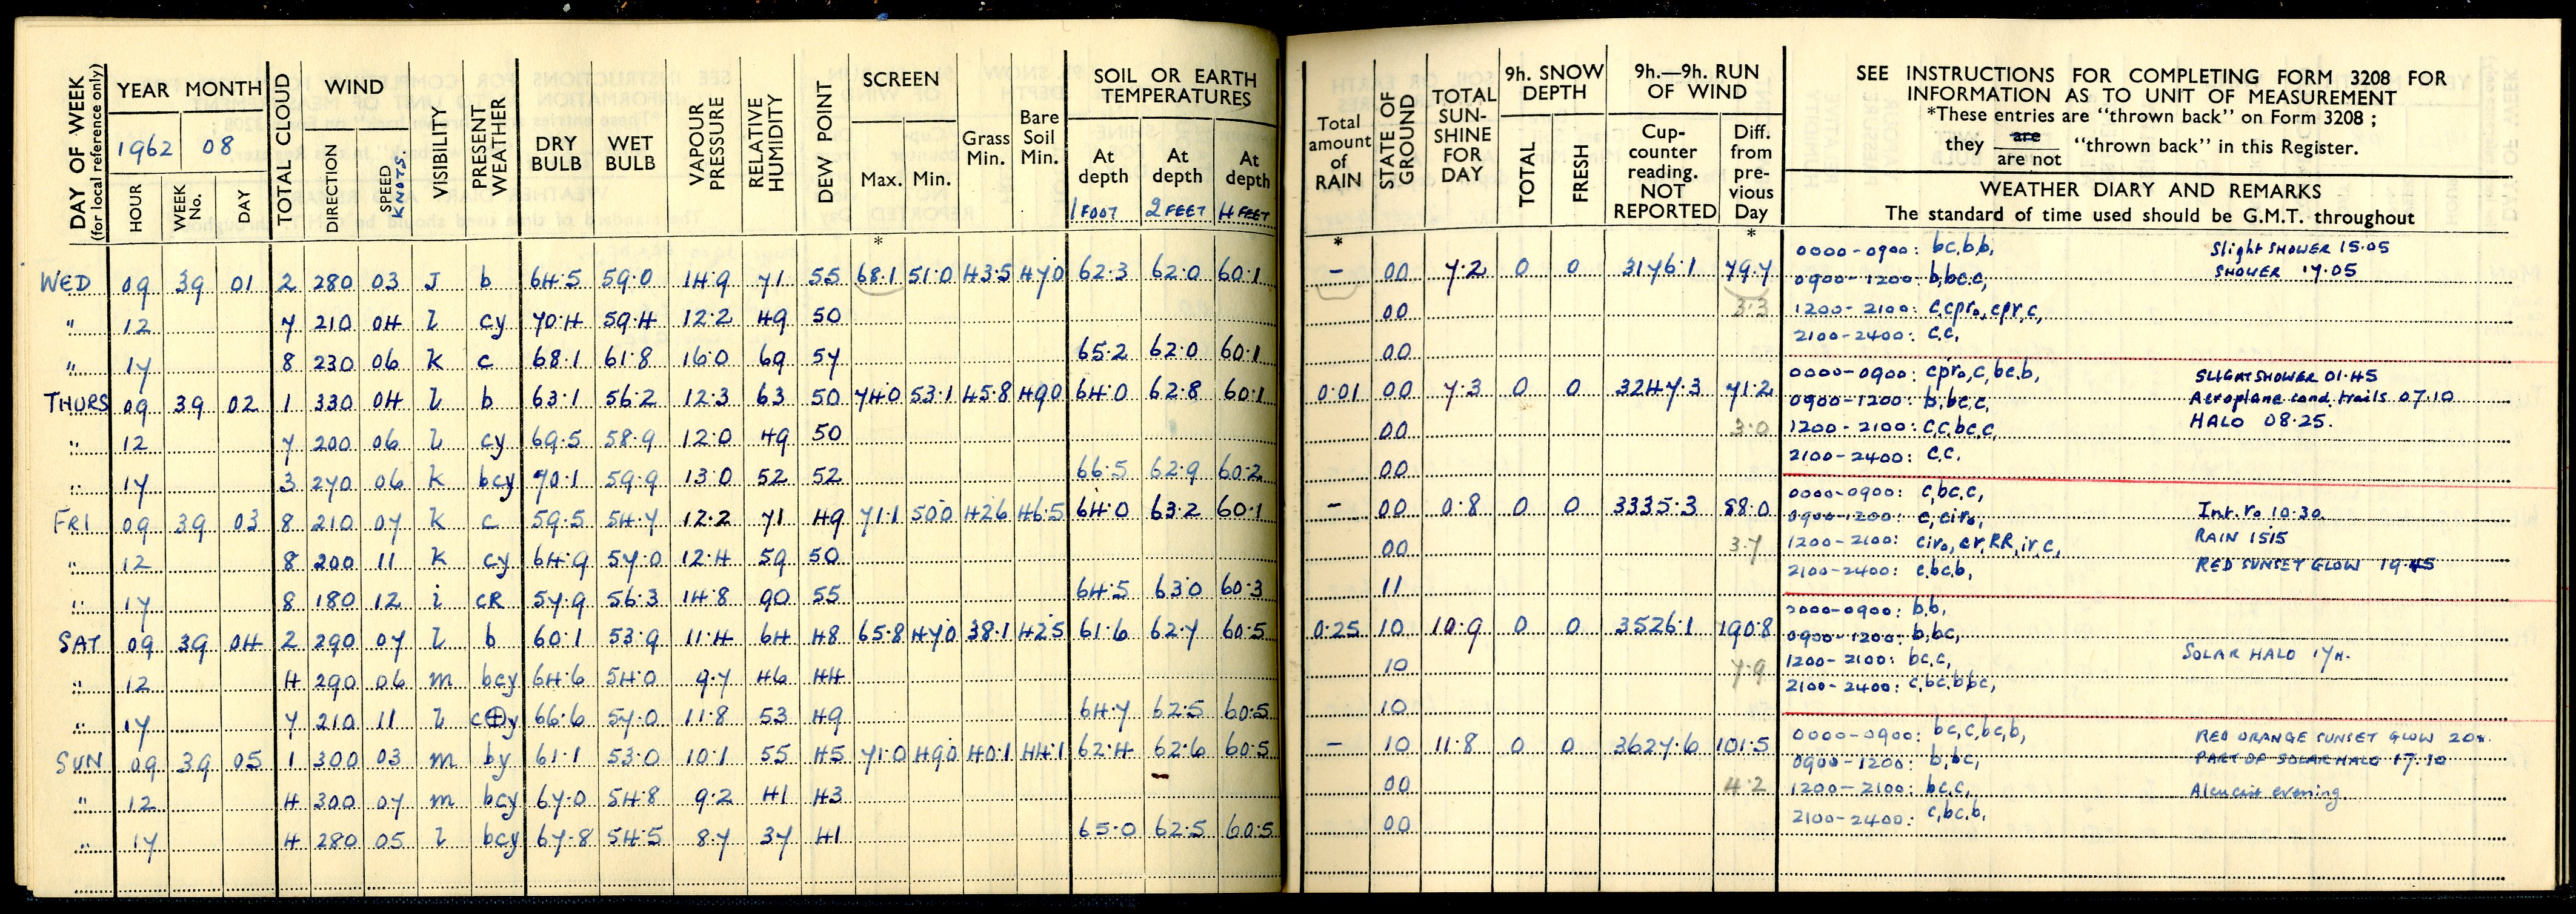 DAY OF WEEK (for local reference only)
YEAR MONTH
1962 08
HOUR WEEK No. DAY
TOTAL CLOUD
WIND
DIRECTION SPEED KNOTS
VISIBILITY
PRESENT WEATHER
DRY BULB WET BULB
VAPOUR PRESSURE
RELATIVE HUMIDITY
DEW POINT
SCREEN
Max. Min.
Grass Min.
Bare Soil Min.
SOIL OR EARTH TEMPERATURES
At depth 1 FOOT At depth 2 FEET At depth 4 FEET
*
WED 09 39 01 2 280 03 J b 64.5 59.0 14.9 71 55 68.1 51.0 43.5 47.0 62.3 62.0 60.1
" 12 7 210 04 l cy 70.4 59.4 12.2 49 50
" 17 8 230 06 k c 68.1 61.8 16.0 69 57 65.2 62.0 60.1
THURS 09 39 02 1 330 04 l b 63.1 56.2 12.3 63 50 74.0 53.1 45.8 49.0 64.0 62.8 60.1
" 12 7 200 06 l cy 69.5 58.9 12.0 49 50
" 17 3 270 06 k bcy 70.1 59.9 13.0 52 52 66.5 62.9 60.2
FRI 09 39 03 8 210 07 k c 59.5 54.7 12.2 71 49 71.1 50.0 42.6 46.5 64.0 63.2 60.1
" 12 8 200 11 k cy 64.9 57.0 12.4 59 50
" 17 8 180 12 i cR 57.9 56.3 14.8 90 55 64.5 63.0 60.3
SAT 09 39 04 2 290 07 l b 60.1 53.9 11.4 64 48 65.8 47.0 38.1 42.5 61.6 62.7 60.5
" 12 4 290 06 m bcy 64.6 54.0 9.7 46 44
" 17 7 210 11 l c⊕y 66.6 57.0 11.8 53 49 64.7 62.5 60.5
SUN 09 39 05 1 300 03 m by 61.1 53.0 10.1 55 45 71.0 49.0 40.1 44.1 62.4 62.6 60.5
" 12 4 300 07 m bcy 67.0 54.8 9.2 41 43
" 17 4 280 05 l bcy 67.8 54.5 8.7 37 41 65.0 62.5 60.5
Total amount of RAIN
STATE OF GROUND
TOTAL SUN-SHINE FOR DAY
9h. SNOW DEPTH
TOTAL FRESH
9h.—9h. RUN OF WIND
Cup-counter reading. NOT REPORTED
Diff. from pre-vious Day
* *
– 00 7.2 0 0 3176.1 79.7
00 3.3
00
0.01 00 7.3 0 0 3247.3 71.2
00 3.0
00
– 00 0.8 0 0 3335.3 88.0
00 3.7
11
0.25 10 10.9 0 0 3526.1 190.8
10 7.9
10
– 10 11.8 0 0 3627.6 101.5
00 4.2
00
SEE INSTRUCTIONS FOR COMPLETING FORM 3208 FOR
INFORMATION AS TO UNIT OF MEASUREMENT
*These entries are "thrown back" on Form 3208 ;
they are / are not "thrown back" in this Register.
WEATHER DIARY AND REMARKS
The standard of time used should be G.M.T. throughout
0000-0900: bc,b,b, Slight SHOWER 15.05
0900-1200: b,bc,c, SHOWER 17.05
1200-2100: c,cpr₀,cpr,c,
2100-2400: c,c,
0000-0900: cpr₀,c,bc,b, SLIGHT SHOWER 01.45
0900-1200: b,bc,c, Aeroplane cond. trails 07.10
1200-2100: c,c,bc,c, HALO 08.25.
2100-2400: c,c,
0000-0900: c,bc,c,
0900-1200: c,cir₀, Int. r₀ 10.30
1200-2100: cir₀,cr,RR,ir,c, RAIN 1515
2100-2400: c,bc,b, RED SUNSET GLOW 19.45
0000-0900: b,b,
0900-1200: b,bc,
1200-2100: bc,c, SOLAR HALO 17H.
2100-2400: c,bc,b,bc,
0000-0900: bc,c,bc,b, RED ORANGE SUNSET GLOW
0900-1200: b,bc, PART OF SOLAR HALO 17.10
1200-2100: bc,c, evening
2100-2400: c,bc,b,